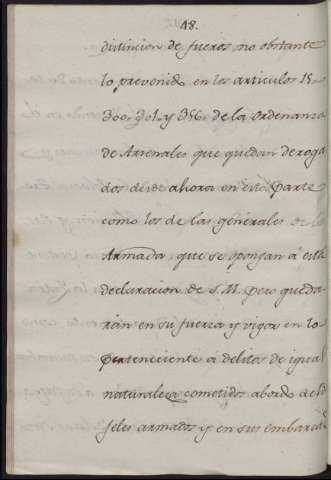 18.
distincion de fueros no obstante
lo prevenido en los articulos 15.
300. 301. y 356. de la ordenanza
de Arsenales que quedan deroga
dos desde ahora en esta parte
como los de las generales de la
Armada, que se opongan á esta
declaracion de S. M. pero queda-
rán en su fuerza y vigor en lo
pertenciente a delitos de igual
naturaleza cometidos abordo de los
Jeles armados y en sus embarca